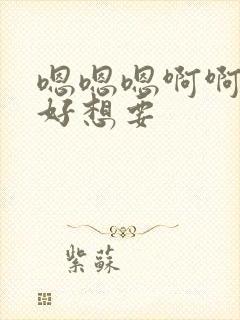 嗯嗯嗯啊啊
好想要
紫蘇